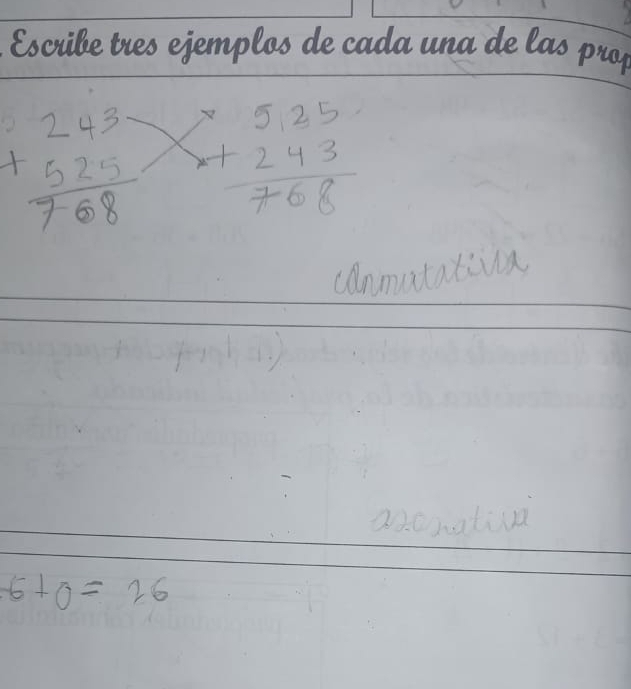 Escribe tres ejemplos de cada una de las prop
243 525
+ 525 + 243
768 768
conmutativa
asociativa
6+0= 26